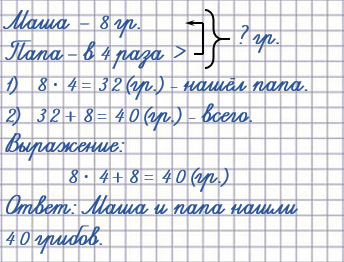 Маша – 8 гр.
Папа – в 4 раза > ? гр.
1) 8 · 4 = 32 (гр.) – нашёл папа.
2) 32 + 8 = 40 (гр.) – всего.
Выражение:
8 · 4 + 8 = 40 (гр.)
Ответ: Маша и папа нашли
40 грибов.